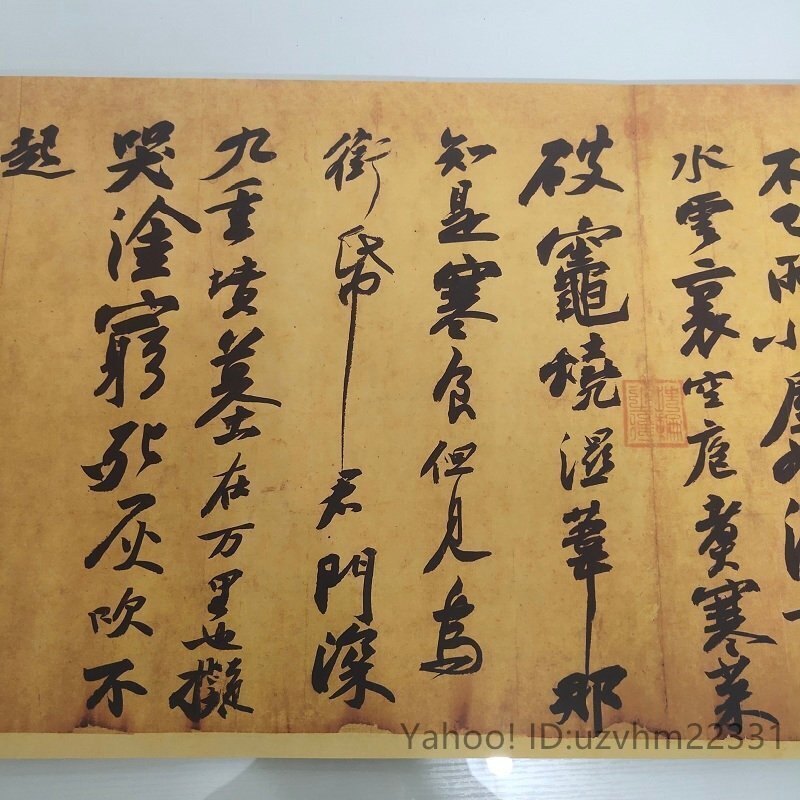 不已雨小屋如漁
水雲裏空庖煮寒菜
破竈燒濕葦那
知是寒食但見烏
銜帋君門深
九重墳墓在万里也擬
哭塗窮死灰吹不
起
Yahoo! ID:uzvhm22331